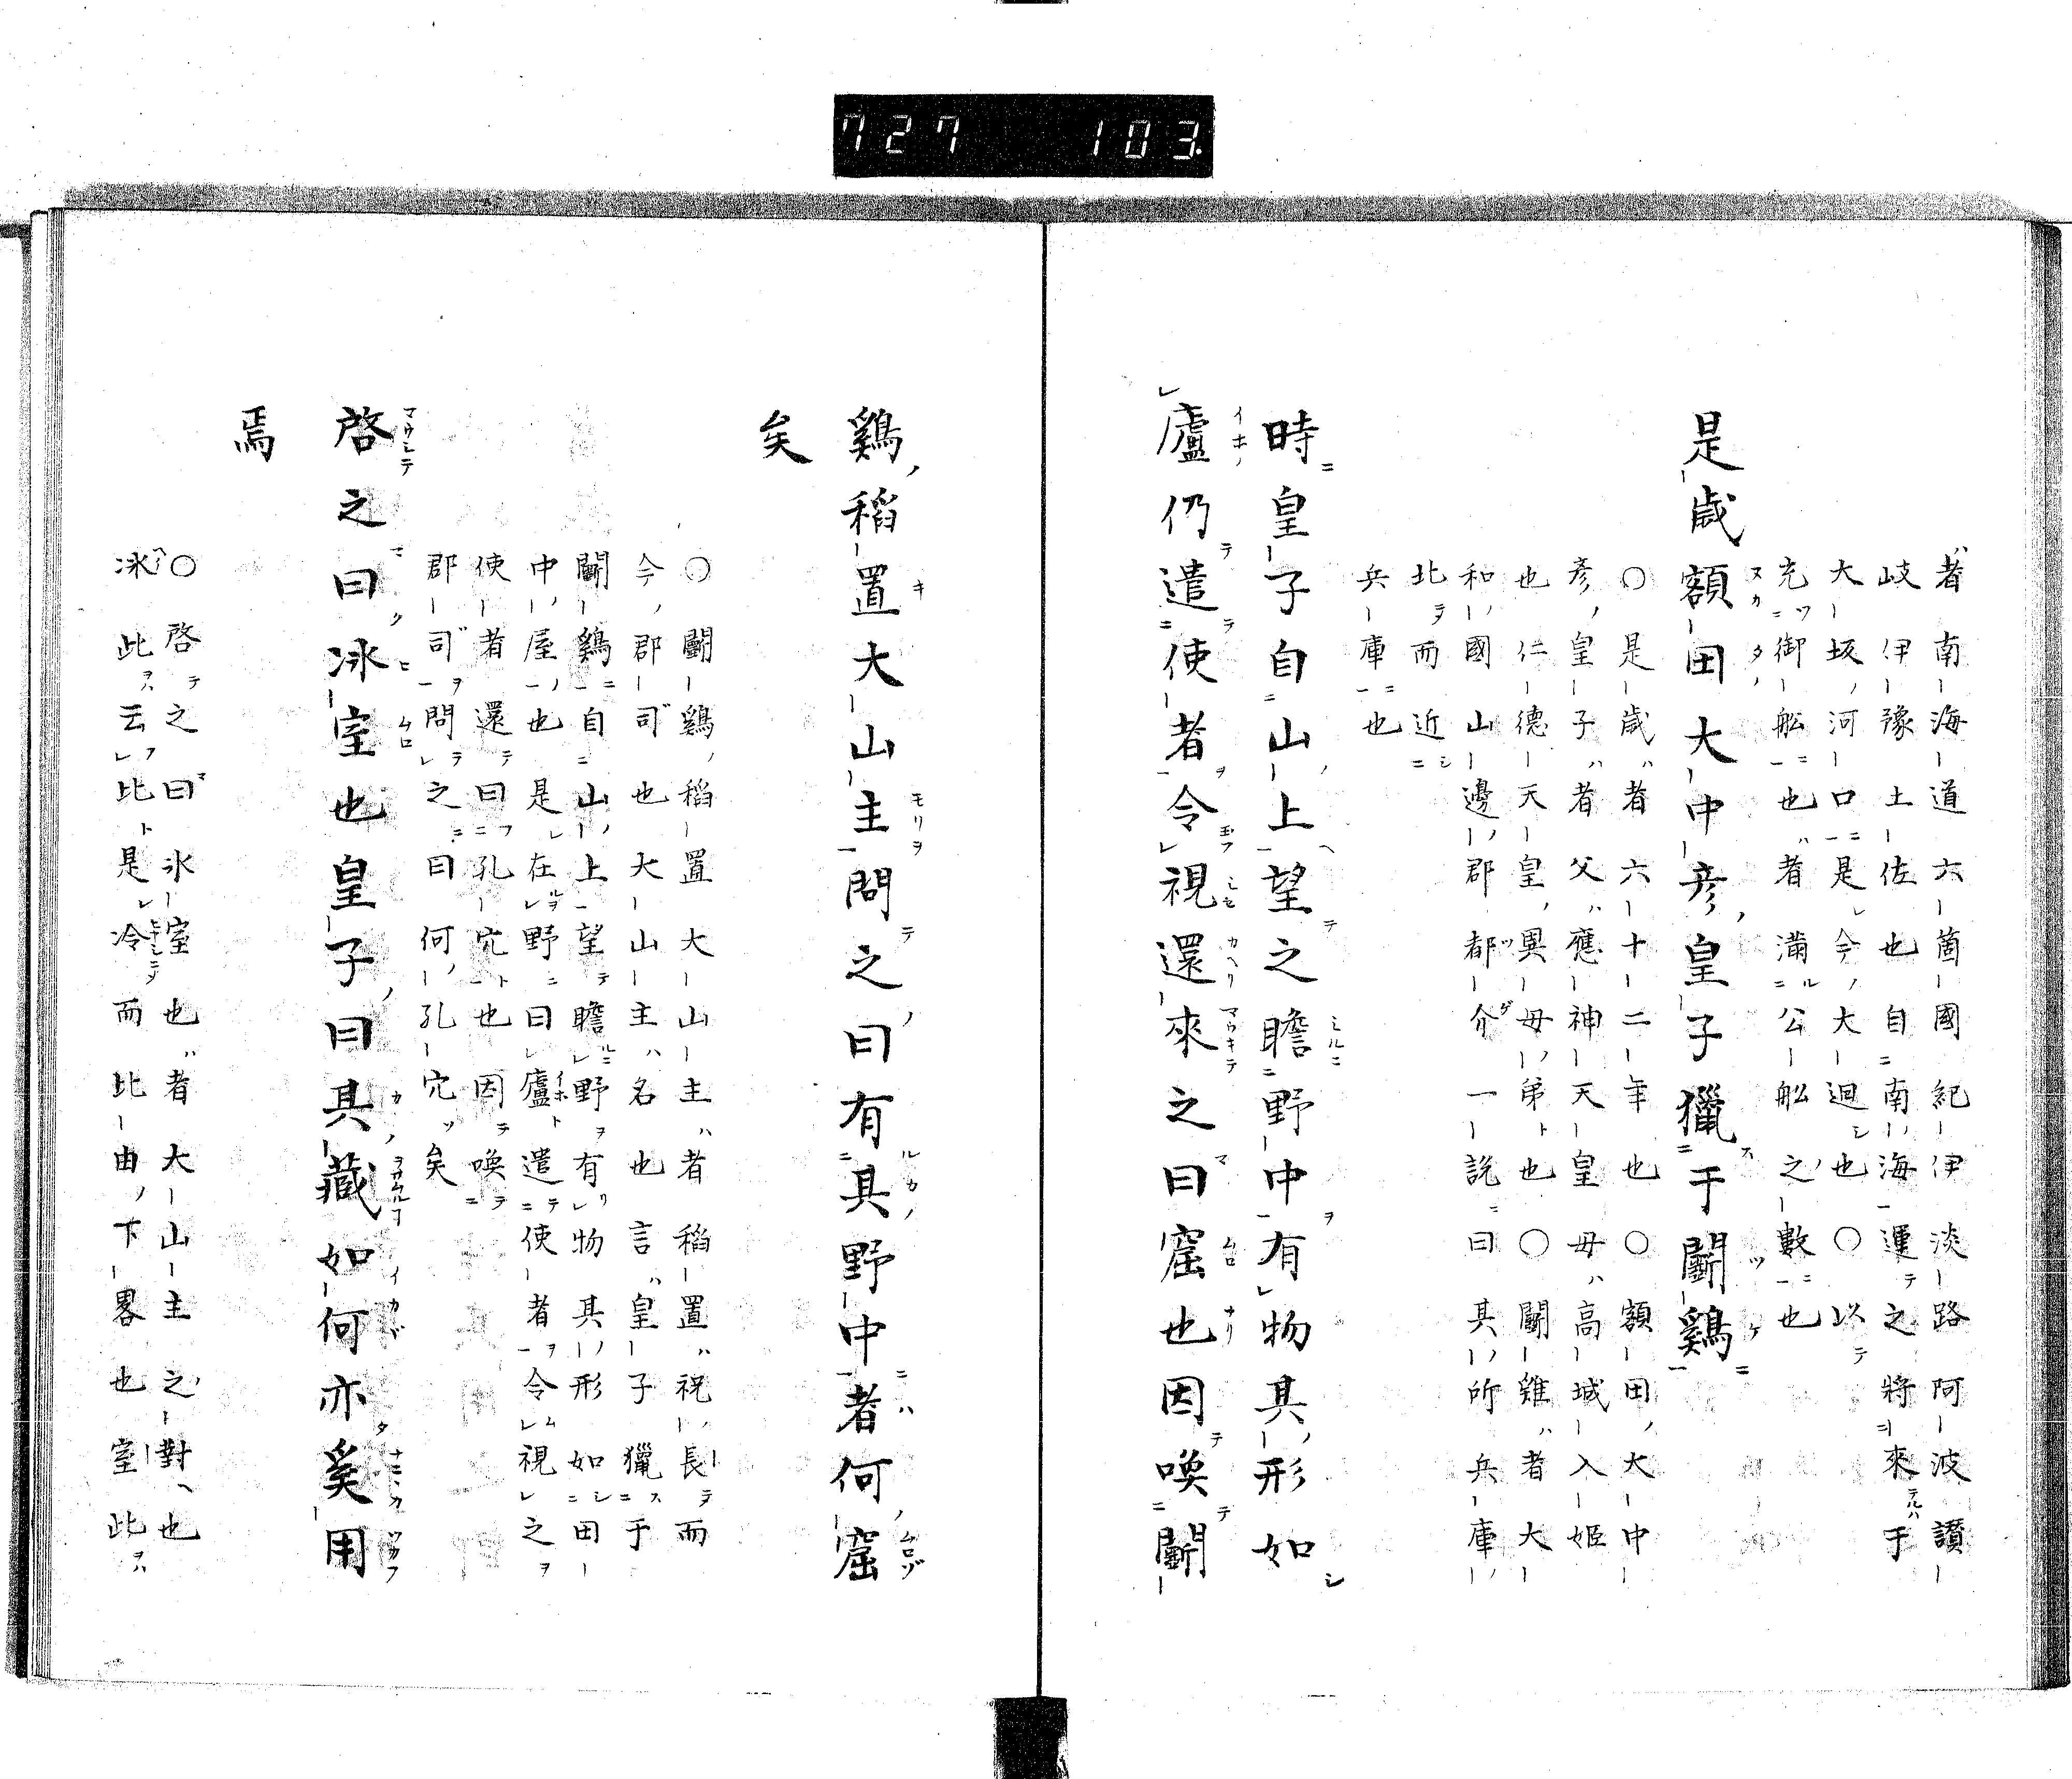 727 103
者南海道六箇國紀伊淡路阿波讃
岐伊豫土佐也自南海運之將來于
大坂河口是今大迴也〇以
充御舩也者滿公舩之數也
是歳額田大中彦皇子獵于鬪鷄
〇是歳者六十二年也〇額田大中
彦皇子者父應神天皇毋高城入姫
也仁德天皇異毋弟也〇鬪雞者大
和國山邊郡都介一説曰其所兵庫
北而近
兵庫也
時皇子自山上望之瞻野中有物其形如
廬仍遣使者令視還來之曰窟也因喚鬪
鷄稻置大山主問之曰有其野中者何窟
矣
〇鬪鷄稻置大山主者稻置祝長而
今郡司也大山主名也言皇子獵于
鬪鷄自山上望瞻野有物其形如田
中屋也是在野曰廬遣使者令視之
使者還曰孔穴也因喚
郡司問之曰何孔穴矣
啓之曰冰室也皇子曰其藏如何亦奚用
焉
〇啓之曰氷室也者大山主之對也
冰此云比是冷而比由下畧也室此